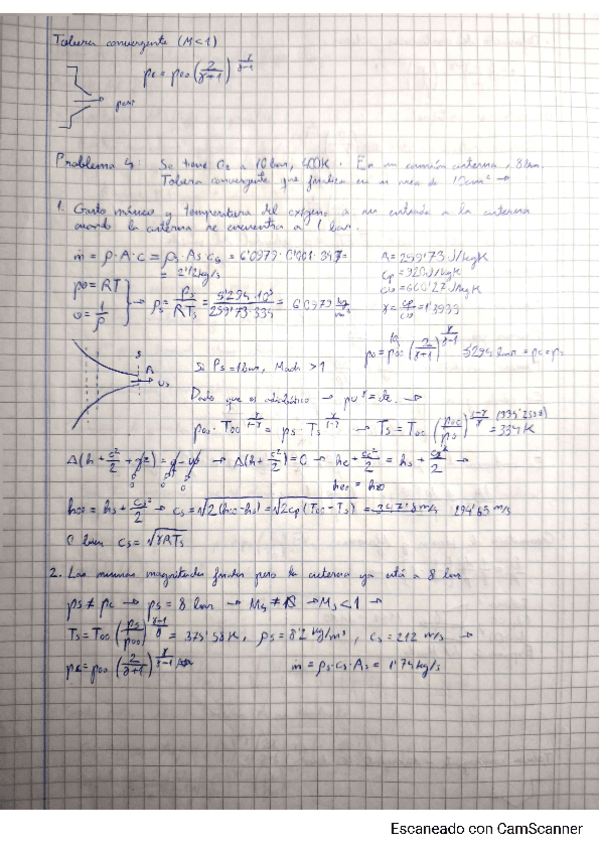 Tobera convergente (M<1)
pc = p00 (2/(γ+1))^(γ/(γ-1))
Problema 4: Se tiene O2 a 10 bar, 400K. En un camión cisterna, 8 bar.
Tobera convergente que finaliza en un área de 10cm² →
1. Gasto másico y temperatura del oxígeno a su entrada a la cisterna
cuando la cisterna se encuentra a 1 bar.
ṁ = ρ·A·c = ρs·As·cs = 6'0979·0'001·347=
= 2'12kg/s
R = 259'73 J/kgK
cp = 920 J/kgK
γ = cp/cv = 1'3939
pv = RT
v = 1/ρ
→ ρs = ps/RTs = 5'294·10⁵/259'73·334 = 6'0979 kg/m³
5'294 bar = pc = ps
S
A
Si Ps = 1 bar, Mach > 1
Dado que es adiabático → pv^γ = cte. →
p00·T00^(γ/(1-γ)) = ps·Ts^(γ/(1-γ)) → Ts = T00 (p00/ps)^((1-γ)/γ) = 334 K
Δ(h + c²/2 + gz) = q - w → Δ(h + c²/2) = 0 → he + ce²/2 = hs + cs²/2 →
h00 = hs + cs²/2 → cs = √2(h00-hs) = √2cp(T00-Ts) =
O bien cs = √γRTs
2. Las mismas magnitudes pero la cisterna ya está a 8 bar
ps ≠ pc → ps = 8 bar → Ms ≠ 1 → Ms < 1 →
Ts = T00 (ps/p00)^((γ-1)/γ) = 375'58K, ρs = 8'2 kg/m³, cs = 212 m/s →
pc = p00 (2/(γ+1))^(γ/(γ-1))
ṁ = ρs·cs·As = 1'74 kg/s
Escaneado con CamScanner